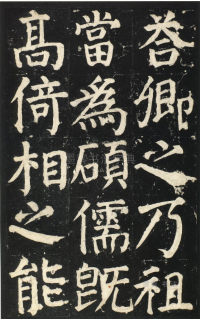 荅卿之乃祖
當為碩儒既
髙倚相之能